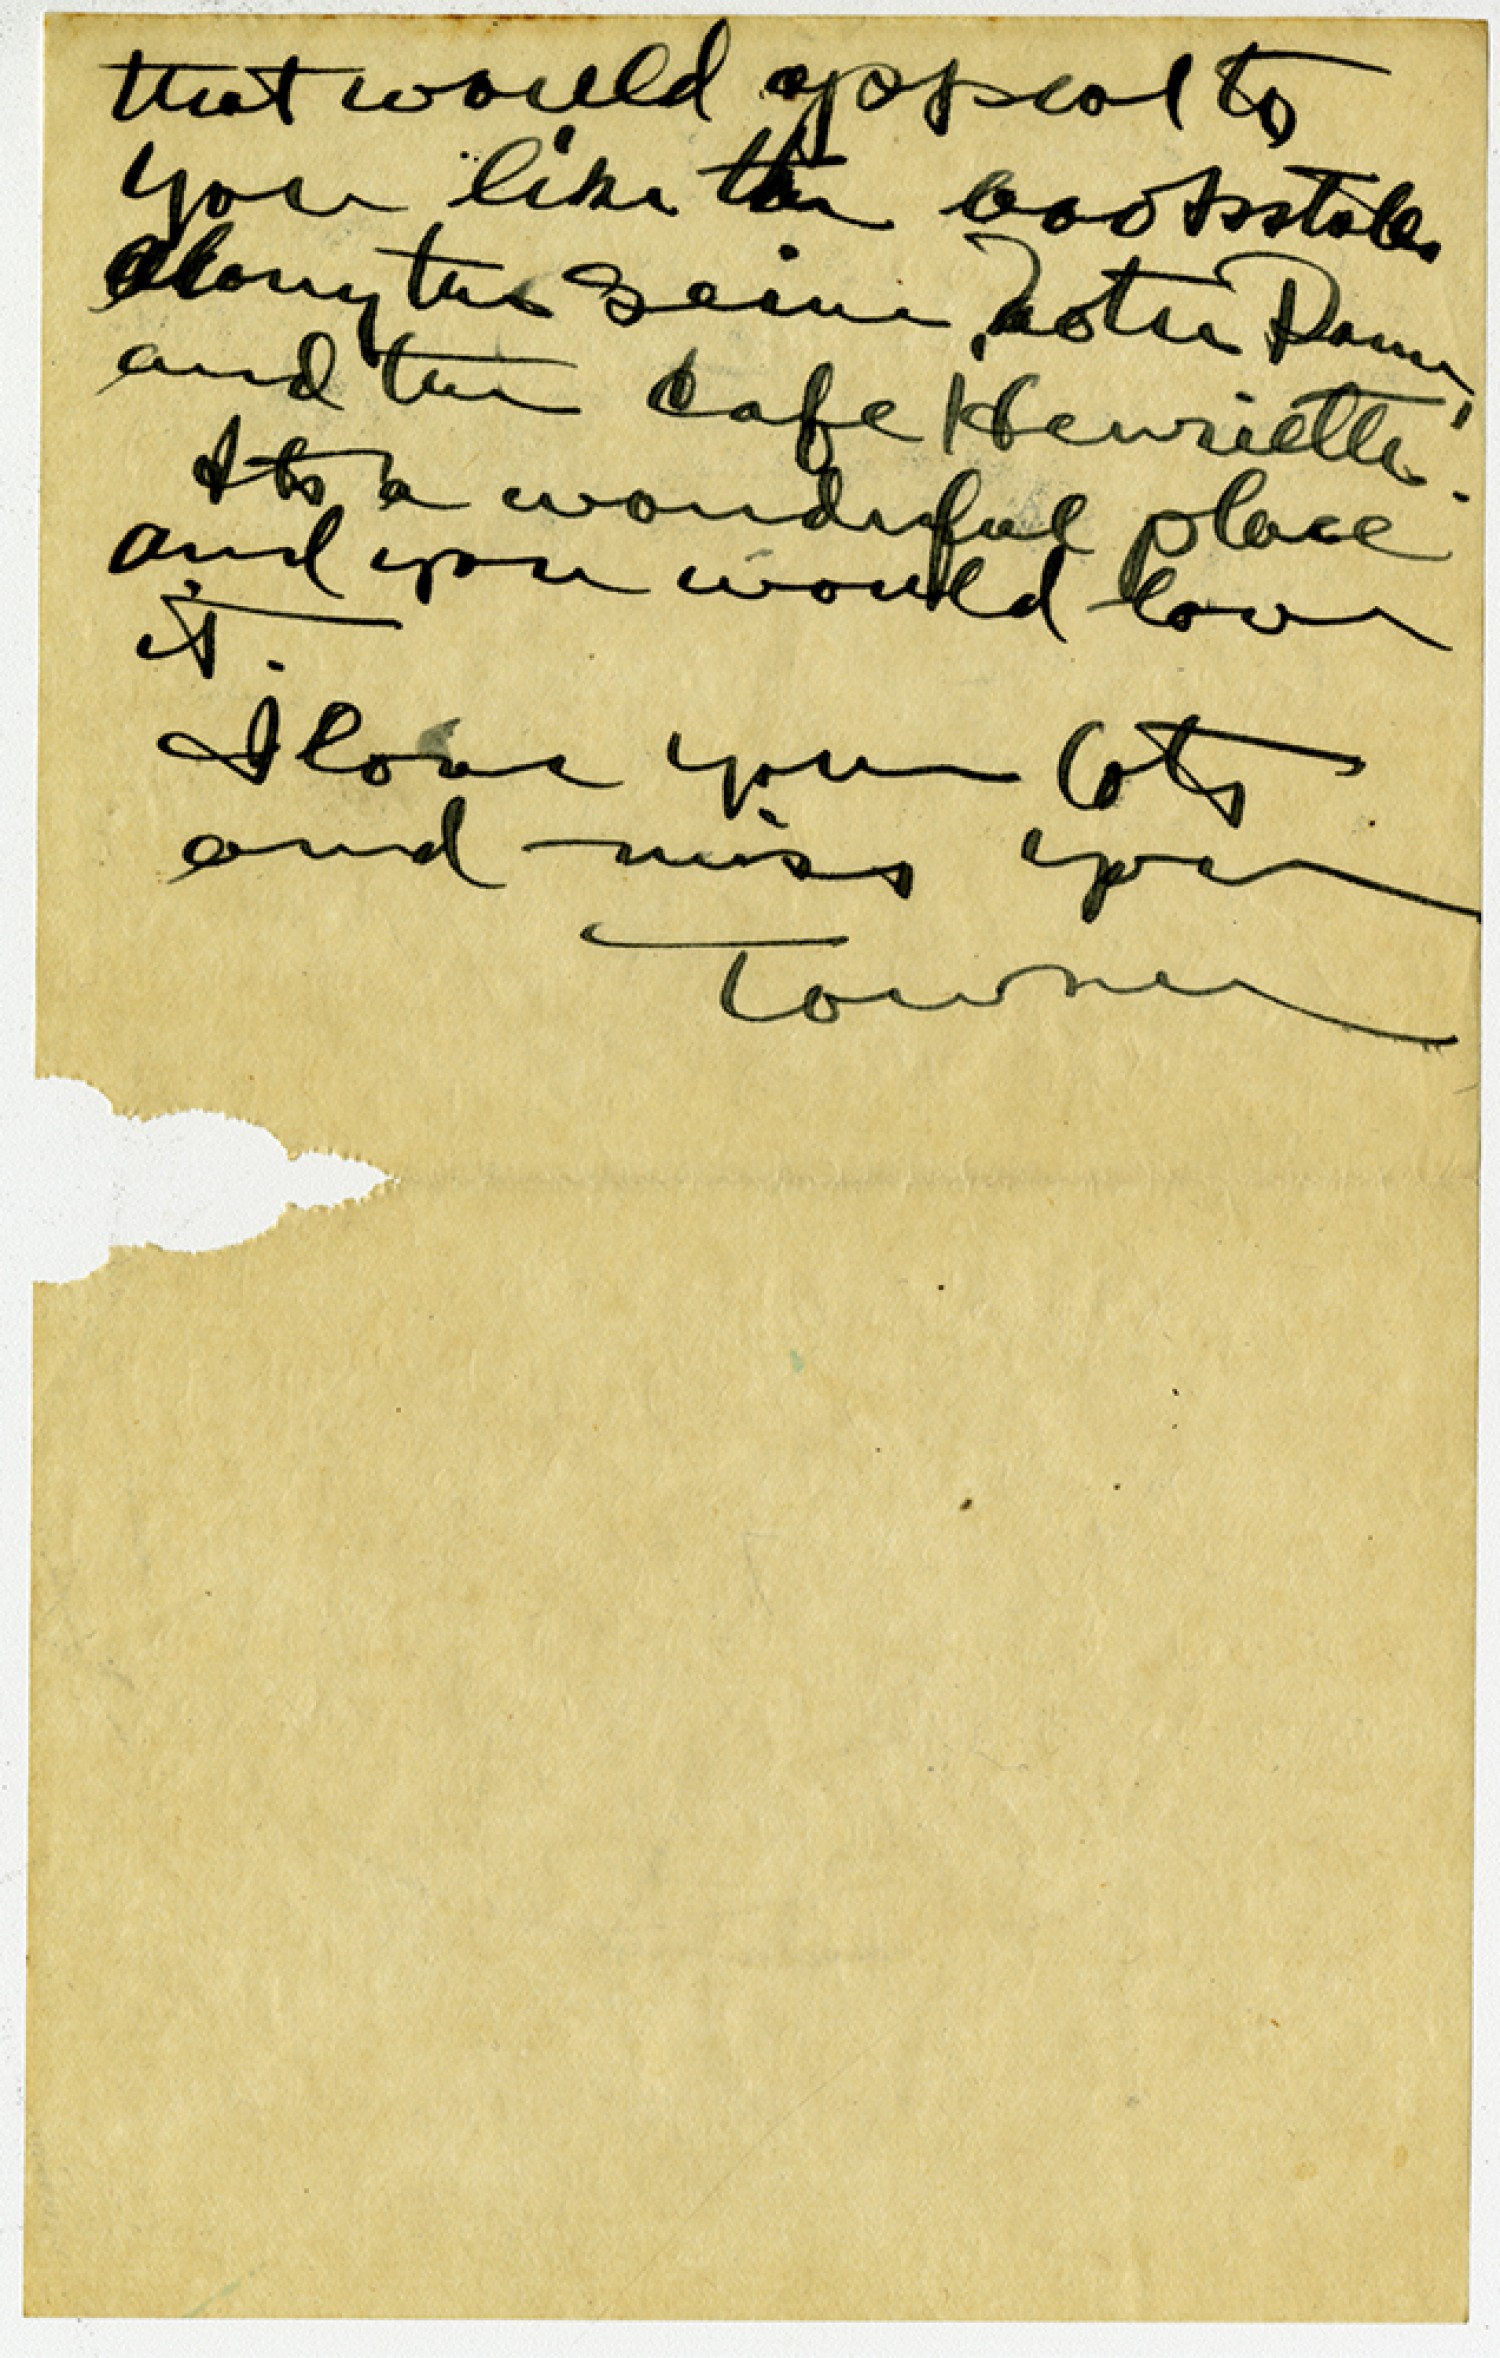 that would appeal to
you like the bookstalls
along the Seine, Notre Dame,
and the Cafe Henriette!
Its a wonderful place
and you would love
it.
I love you lots
and miss you
Towner